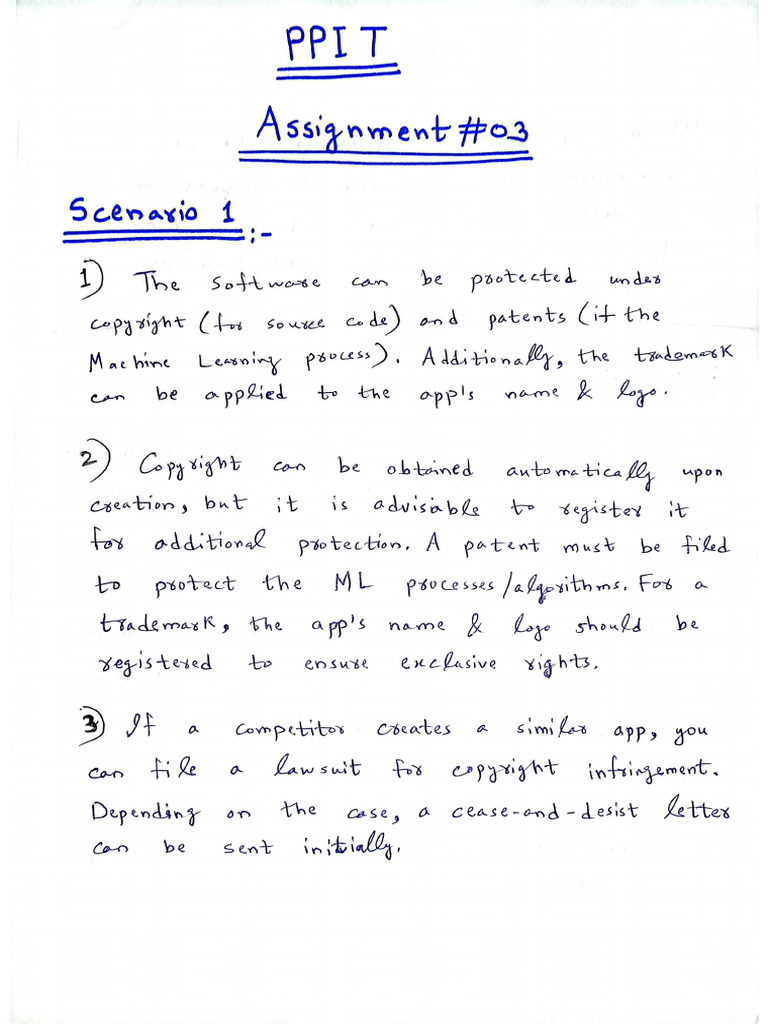 PPIT
Assignment #03
Scenario 1 :-
1) The software can be protected under
copyright (for source code) and patents (if the
Machine Learning process). Additionally, the trademark
can be applied to the app's name & logo.
2) Copyright can be obtained automatically upon
creation, but it is advisiable to register it
for additional protection. A patent must be filed
to protect the ML processes/algorithms. For a
trademark, the app's name & logo should be
registered to ensure exclusive rights.
3) If a competitor creates a similar app, you
can file a lawsuit for copyright infringement.
Depending on the case, a cease-and-desist letter
can be sent initially.